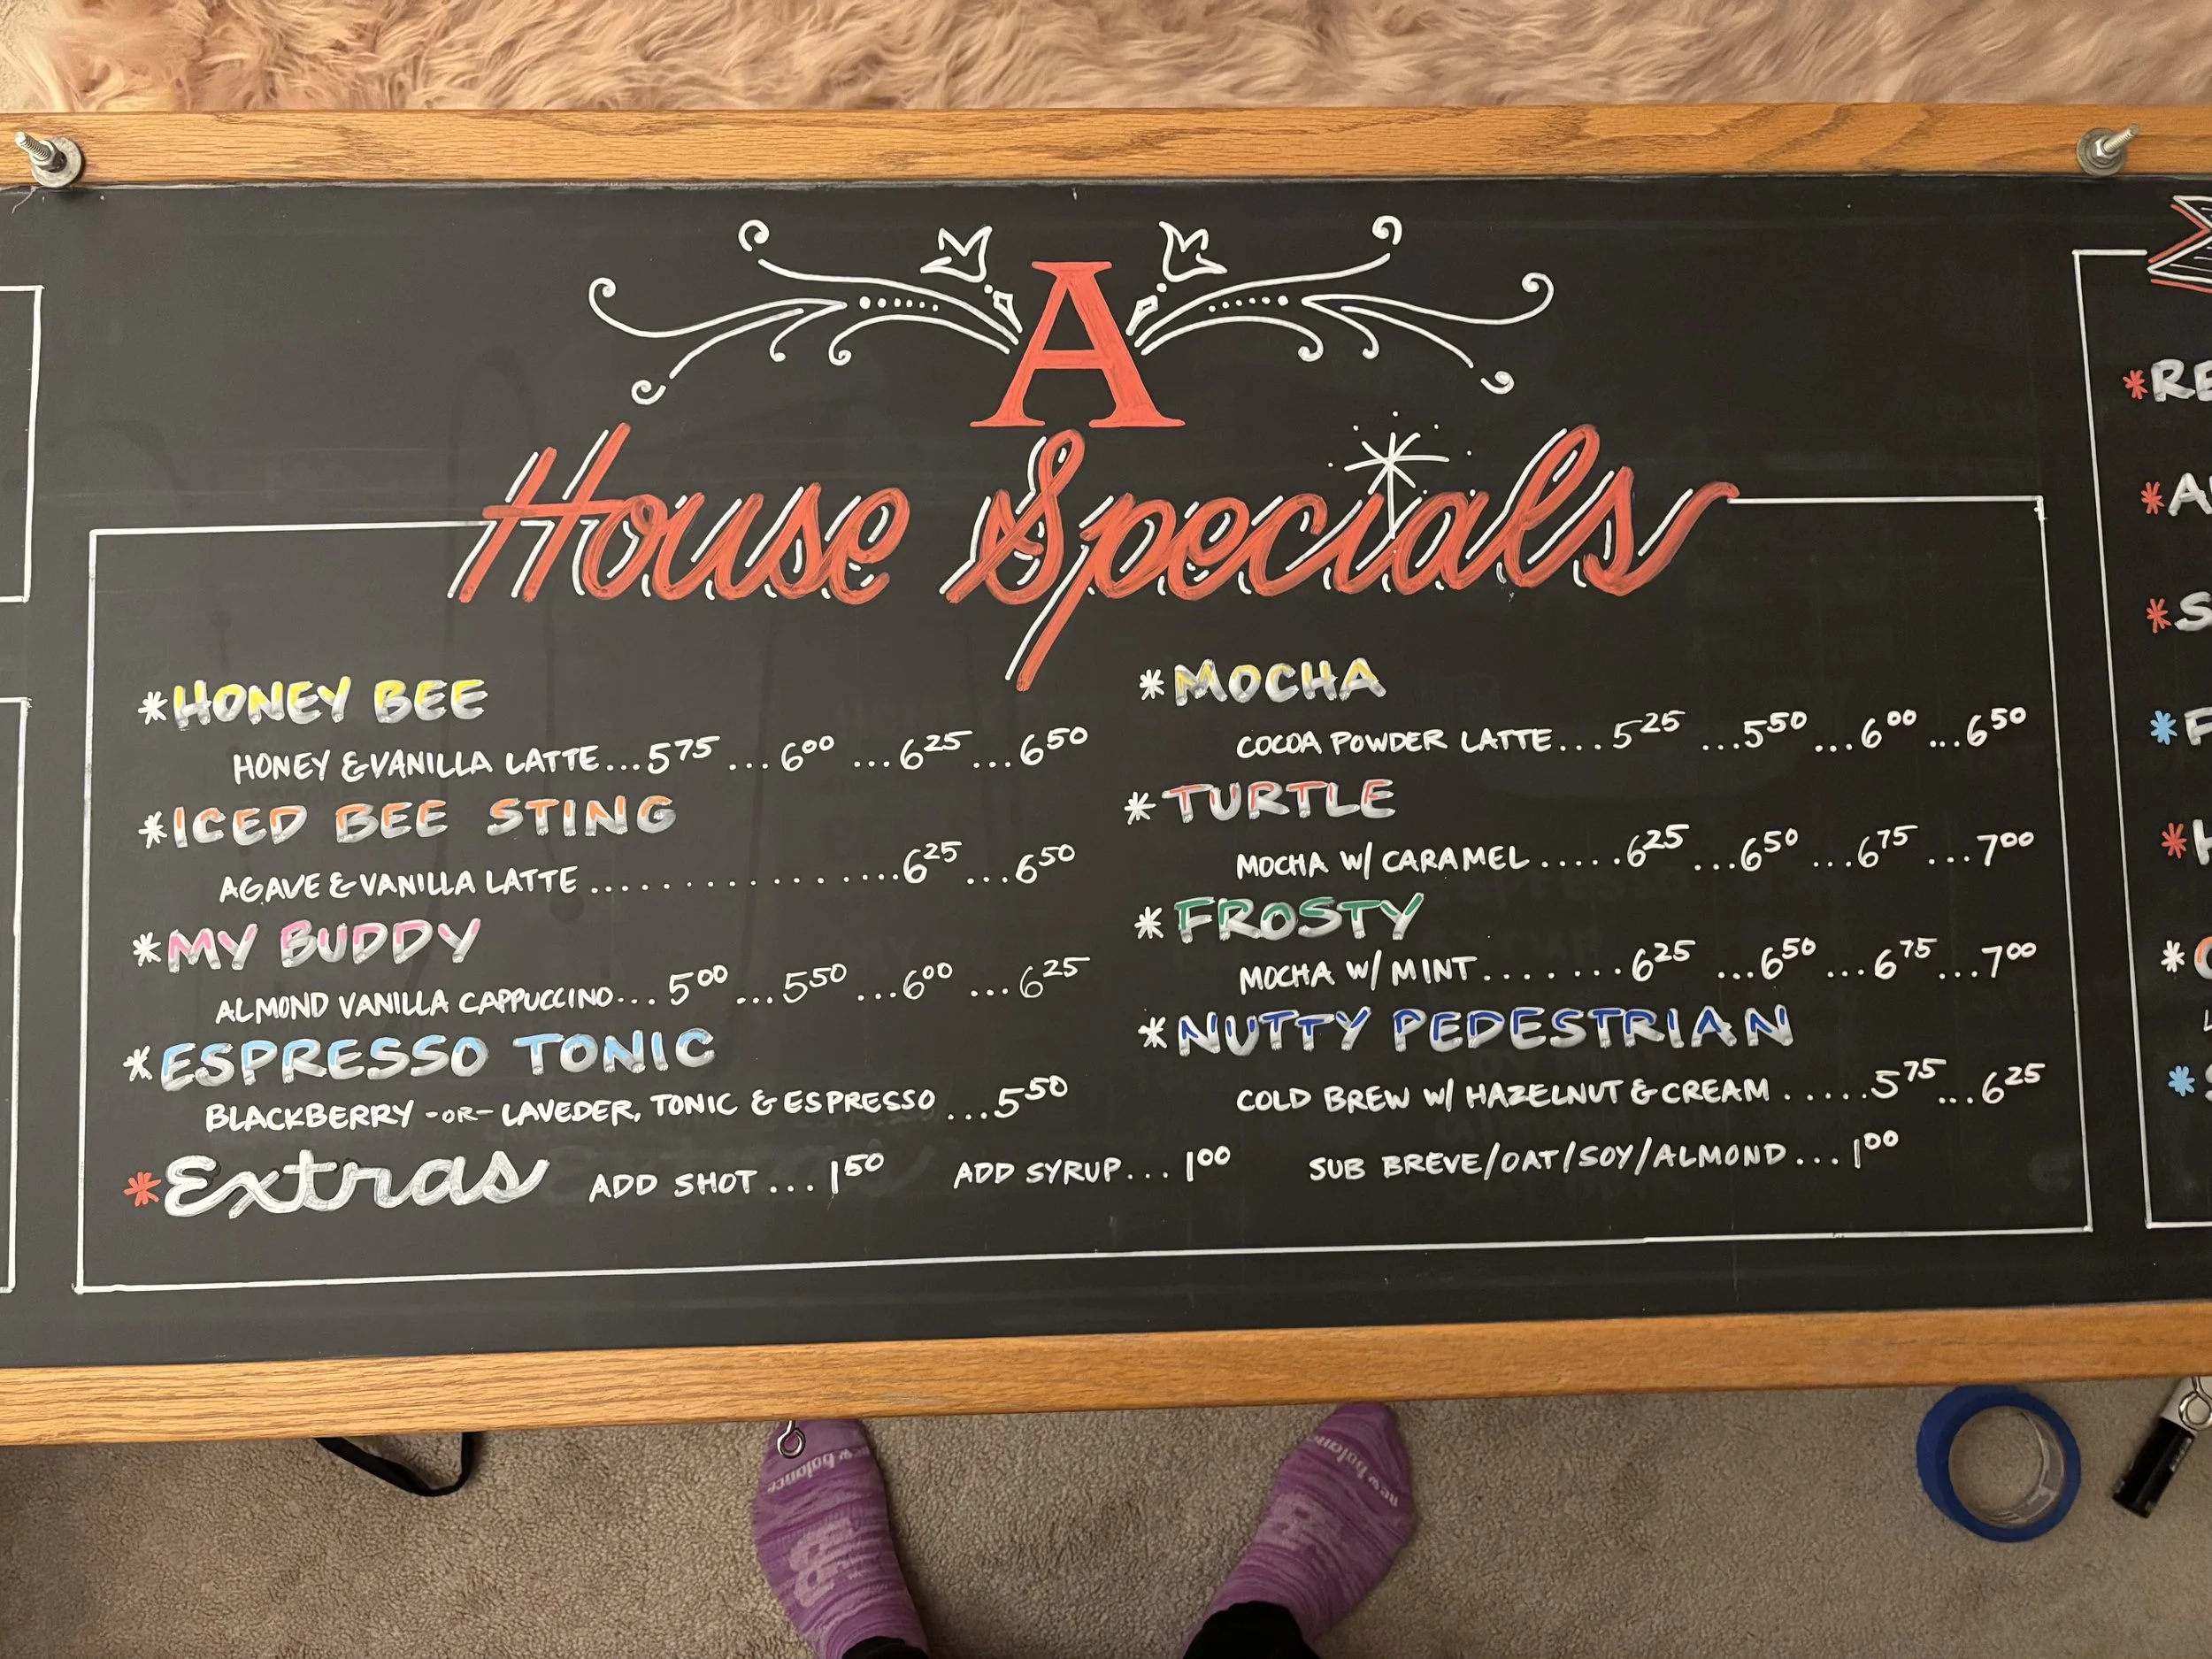 A
House Specials
*HONEY BEE
HONEY & VANILLA LATTE...5 75 ...6 00 ...6 25 ...6 50
*ICED BEE STING
AGAVE & VANILLA LATTE ...............6 25 ...6 50
*MY BUDDY
ALMOND VANILLA CAPPUCCINO...5 00 ...5 50 ...6 00 ...6 25
*ESPRESSO TONIC
BLACKBERRY -OR- LAVEDER, TONIC & ESPRESSO ...5 50
*MOCHA
COCOA POWDER LATTE...5 25 ...5 50 ...6 00 ...6 50
*TURTLE
MOCHA W/ CARAMEL.....6 25 ...6 50 ...6 75 ...7 00
*FROSTY
MOCHA W/ MINT.......6 25 ...6 50 ...6 75 ...7 00
*NUTTY PEDESTRIAN
COLD BREW W/ HAZELNUT & CREAM .....5 75 ...6 25
*Extras ADD SHOT ...1 50 ADD SYRUP...1 00 SUB BREVE/OAT/SOY/ALMOND...1 00
new balance
new balance